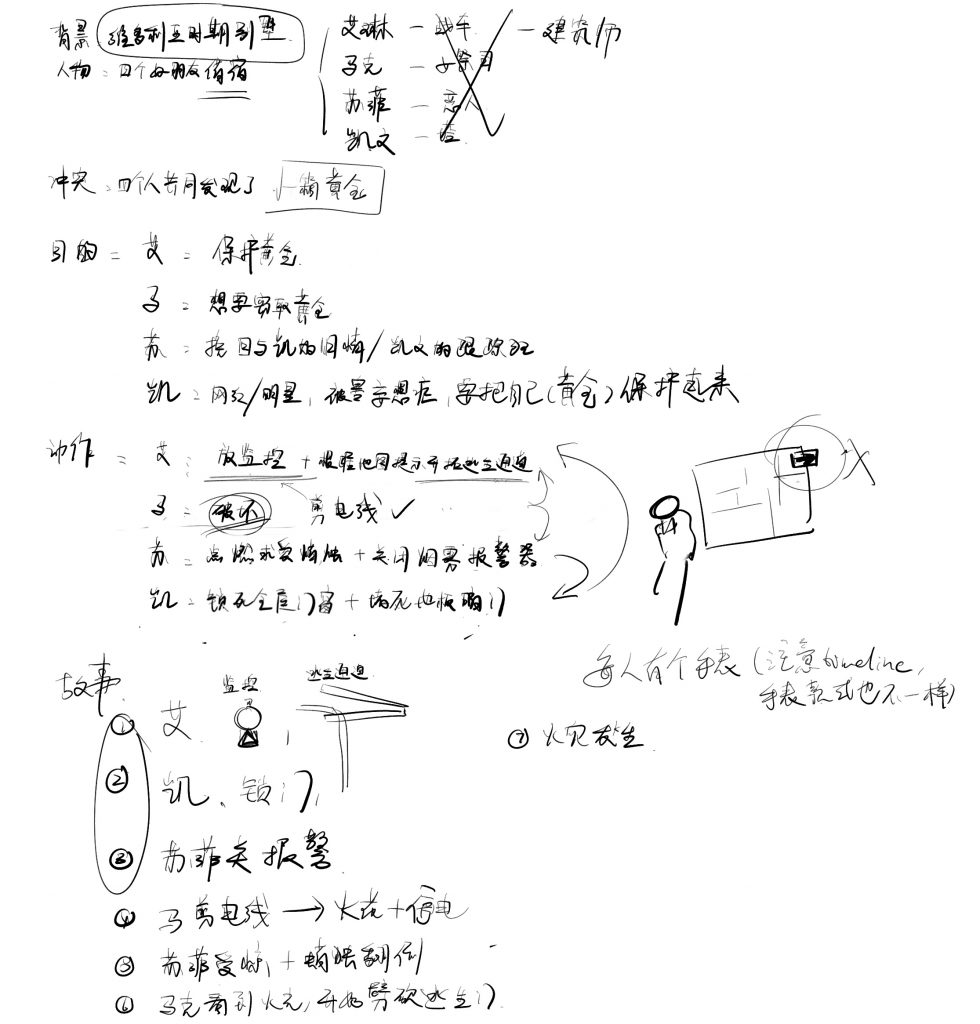 背景：维多利亚时期别墅
人物：四个好朋友借宿
艾琳 — 建筑师
马克 —
苏菲 — 恋人
凯文 —
冲突：四个人共同发现了 一箱黄金
目的 = 艾 = 保护黄金
马：想要窃取黄金
苏：挽回与凯的旧情/凯文的跟踪狂
凯：网红/明星，被害妄想症，要把自己(黄金)保护起来
动作 = 艾：放监控 + 根据地图提示开拓逃生通道
马 = 破坏 剪电线 ✓
苏 = 点燃求爱蜡烛 + 关闭烟雾报警器
凯：锁死全屋门窗 + 堵死地板暗门
每人有个手表(注意timeline,
手表款式也不一样)
故事
监控
逃生通道
① 艾
② 凯、锁门
③ 苏菲关报警
④ 马剪电线 → 火花+停电
⑤ 苏菲受惊，+蜡烛翻倒
⑥ 马克看到火光，开始劈砍逃生门
⑦ 火灾发生